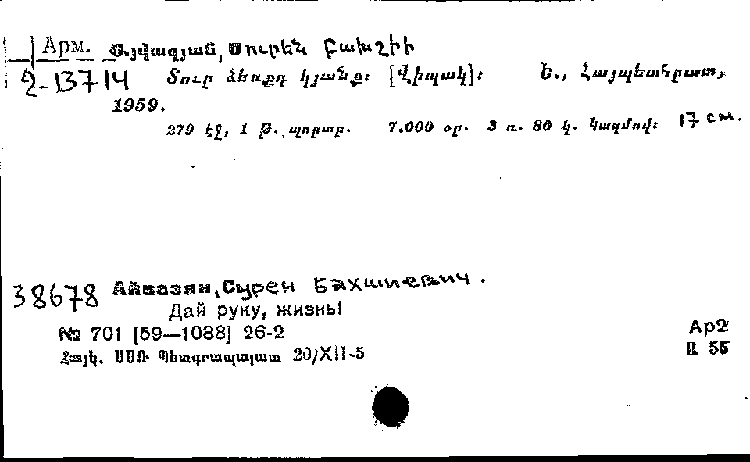 Арм. Այվազյան, Սուրեն Բախշիի
2-13714 Տուր ձեռքդ կյանք։ [Վիպակ]։ Ե., Հայպետհրատ,
1959.
279 էջ, 1 թ. պորտր. 7.000 օր. 3 ռ. 80 կ. կազմով։ 17 см.
38678 Айвазян, Сурен Бахшиевич.
Дай руку, жизнь!
№ 701 [59—1088] 26-2 Ар2
Հայկ. ՍՍՌ Պետգրապալատ 20/XII-5 Ա 55